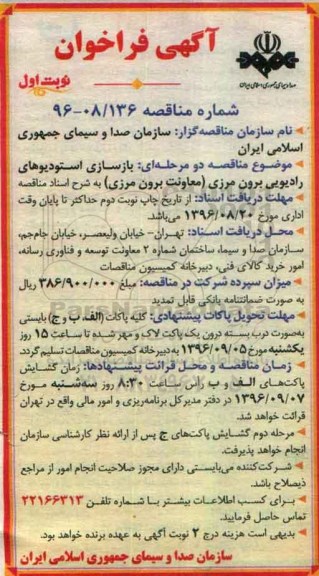 آگهی فراخوان
صدا و سیمای جمهوری اسلامی ایران
نوبت اول
شماره مناقصه ۹۶-۰۸/۱۳۶
نام سازمان مناقصه‌گزار: سازمان صدا و سیمای جمهوری
اسلامی ایران
موضوع مناقصه دو مرحله‌ای: بازسازی استودیوهای
رادیویی برون مرزی (معاونت برون مرزی) به شرح اسناد مناقصه
مهلت دریافت اسناد: از تاریخ چاپ نوبت دوم حداکثر تا پایان وقت
اداری مورخ ۱۳۹۶/۰۸/۲۰ می‌باشد.
محل دریافت اسناد: تهران- خیابان ولیعصر، خیابان جام‌جم،
سازمان صدا و سیما، ساختمان شماره ۲ معاونت توسعه و فناوری رسانه،
امور خرید کالای فنی، دبیرخانه کمیسیون مناقصات
میزان سپرده شرکت در مناقصه: مبلغ ۳۸۶/۹۰۰/۰۰۰ ریال
به صورت ضمانتنامه بانکی قابل تمدید
مهلت تحویل پاکات پیشنهادی: کلیه پاکات (الف، ب و ج) بایستی
به‌صورت درب بسته درون یک پاکت لاک و مهر شده تا ساعت ۱۵ روز
یکشنبه مورخ ۱۳۹۶/۰۹/۰۵ به دبیرخانه کمیسیون مناقصات تسلیم گردد.
زمان مناقصه و محل قرائت پیشنهادها: زمان گشایش
پاکت‌های الف و ب راس ساعت ۸:۳۰ روز سه‌شنبه مورخ
۱۳۹۶/۰۹/۰۷ در دفتر مدیر کل برنامه‌ریزی و امور مالی واقع در تهران
قرائت خواهد شد.
مرحله دوم گشایش پاکت‌های ج پس از ارائه نظر کارشناسی سازمان
انجام خواهد پذیرفت.
شرکت‌کننده می‌بایستی دارای مجوز صلاحیت انجام امور از مراجع
ذیصلاح باشد.
برای کسب اطلاعات بیشتر با شماره تلفن ۲۲۱۶۶۳۱۳
تماس حاصل فرمایید.
بدیهی است هزینه درج ۲ نوبت آگهی به عهده برنده خواهد بود.
سازمان صدا و سیمای جمهوری اسلامی ایران